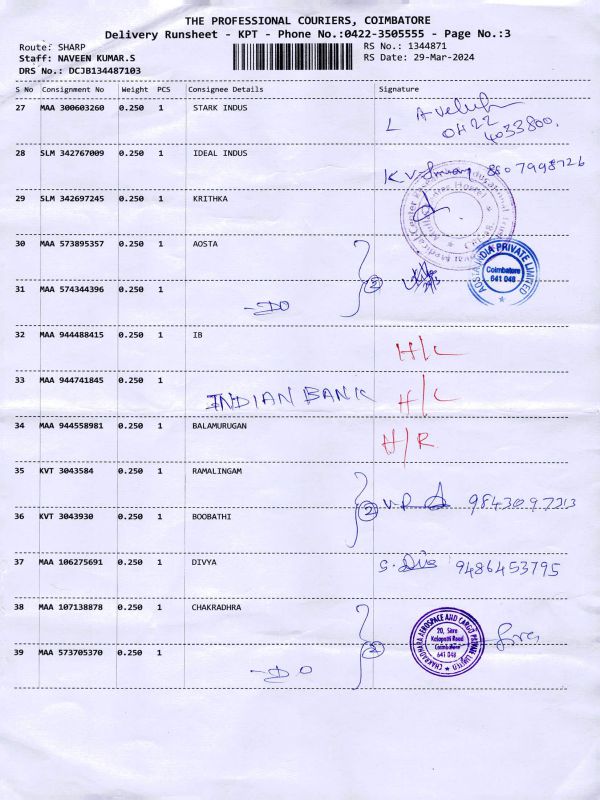 THE PROFESSIONAL COURIERS, COIMBATORE
Delivery Runsheet - KPT - Phone No.:0422-3505555 - Page No.:3
Route: SHARP RS No.: 1344871
Staff: NAVEEN KUMAR.S RS Date: 29-Mar-2024
DRS No.: DCJB134487103
S No Consignment No Weight PCS Consignee Details Signature
27 MAA 300603260 0.250 1 STARK INDUS
0422
4033800.
28 SLM 342767009 0.250 1 IDEAL INDUS
29 SLM 342697245 0.250 1 KRITHKA
30 MAA 573895357 0.250 1 AOSTA
AOSTA INDIA PRIVATE LIMITED
Coimbatore
641 048
31 MAA 574344396 0.250 1
-DO 2
32 MAA 944488415 0.250 1 IB
H/L
33 MAA 944741845 0.250 1
INDIAN BANK H/L
34 MAA 944558981 0.250 1 BALAMURUGAN
H/R
35 KVT 3043584 0.250 1 RAMALINGAM
2 V.P
36 KVT 3043930 0.250 1 BOOBATHI
37 MAA 106275691 0.250 1 DIVYA
9486453795
38 MAA 107138878 0.250 1 CHAKRADHRA
CHAKRADHARA AEROSPACE AND CARGO PRIVATE LIMITED
Coimbatore
641 048
39 MAA 573705370 0.250 1
-DO 2